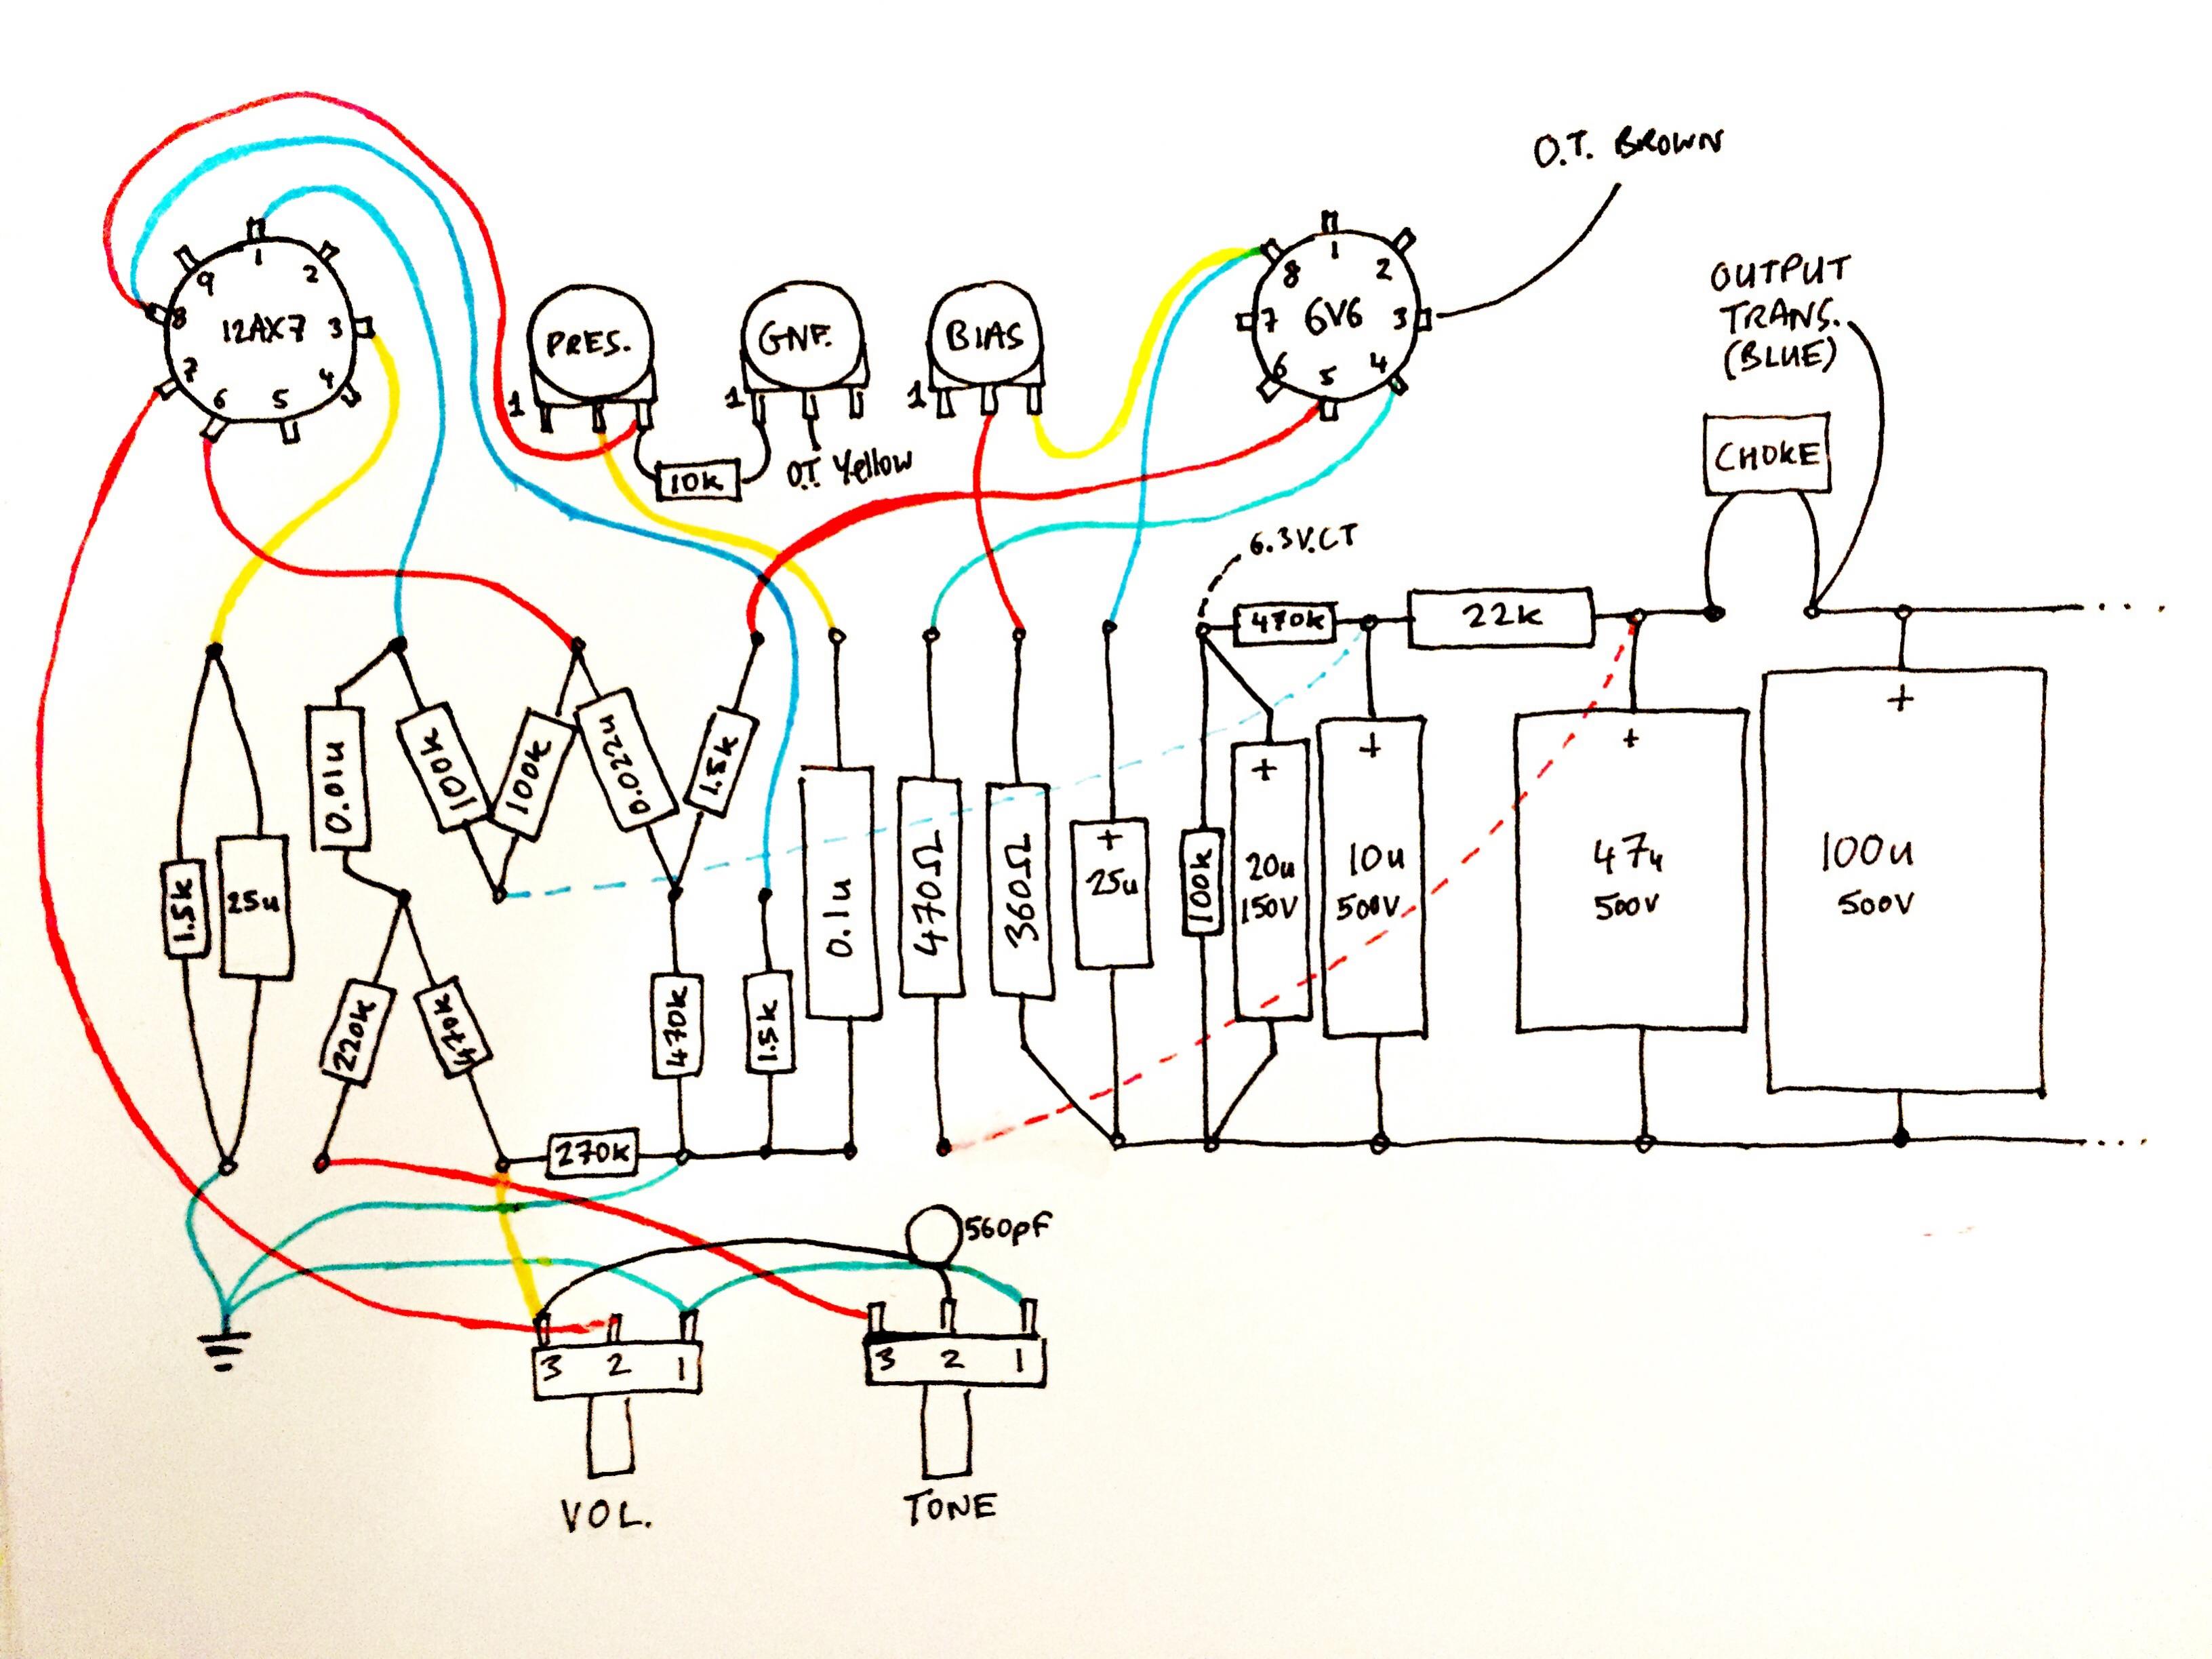 O.T. BROWN
OUTPUT
TRANS.
(BLUE)
CHOKE
12AX7
1
2
3
4
5
6
7
8
9
PRES.
1
GNF.
1
BIAS
1
6V6
1
2
3
4
5
6
7
8
10k
O.T. Yellow
6.3V.CT
470k
22k
0.01u
100k
100k
0.022u
1.5k
1.5k
25u
220k
470k
270k
470k
1.5k
0.1u
470Ω
360Ω
+
25u
100k
+
20u
150V
+
10u
500V
+
47u
500V
+
100u
500V
560pf
3 2 1
VOL.
3 2 1
TONE